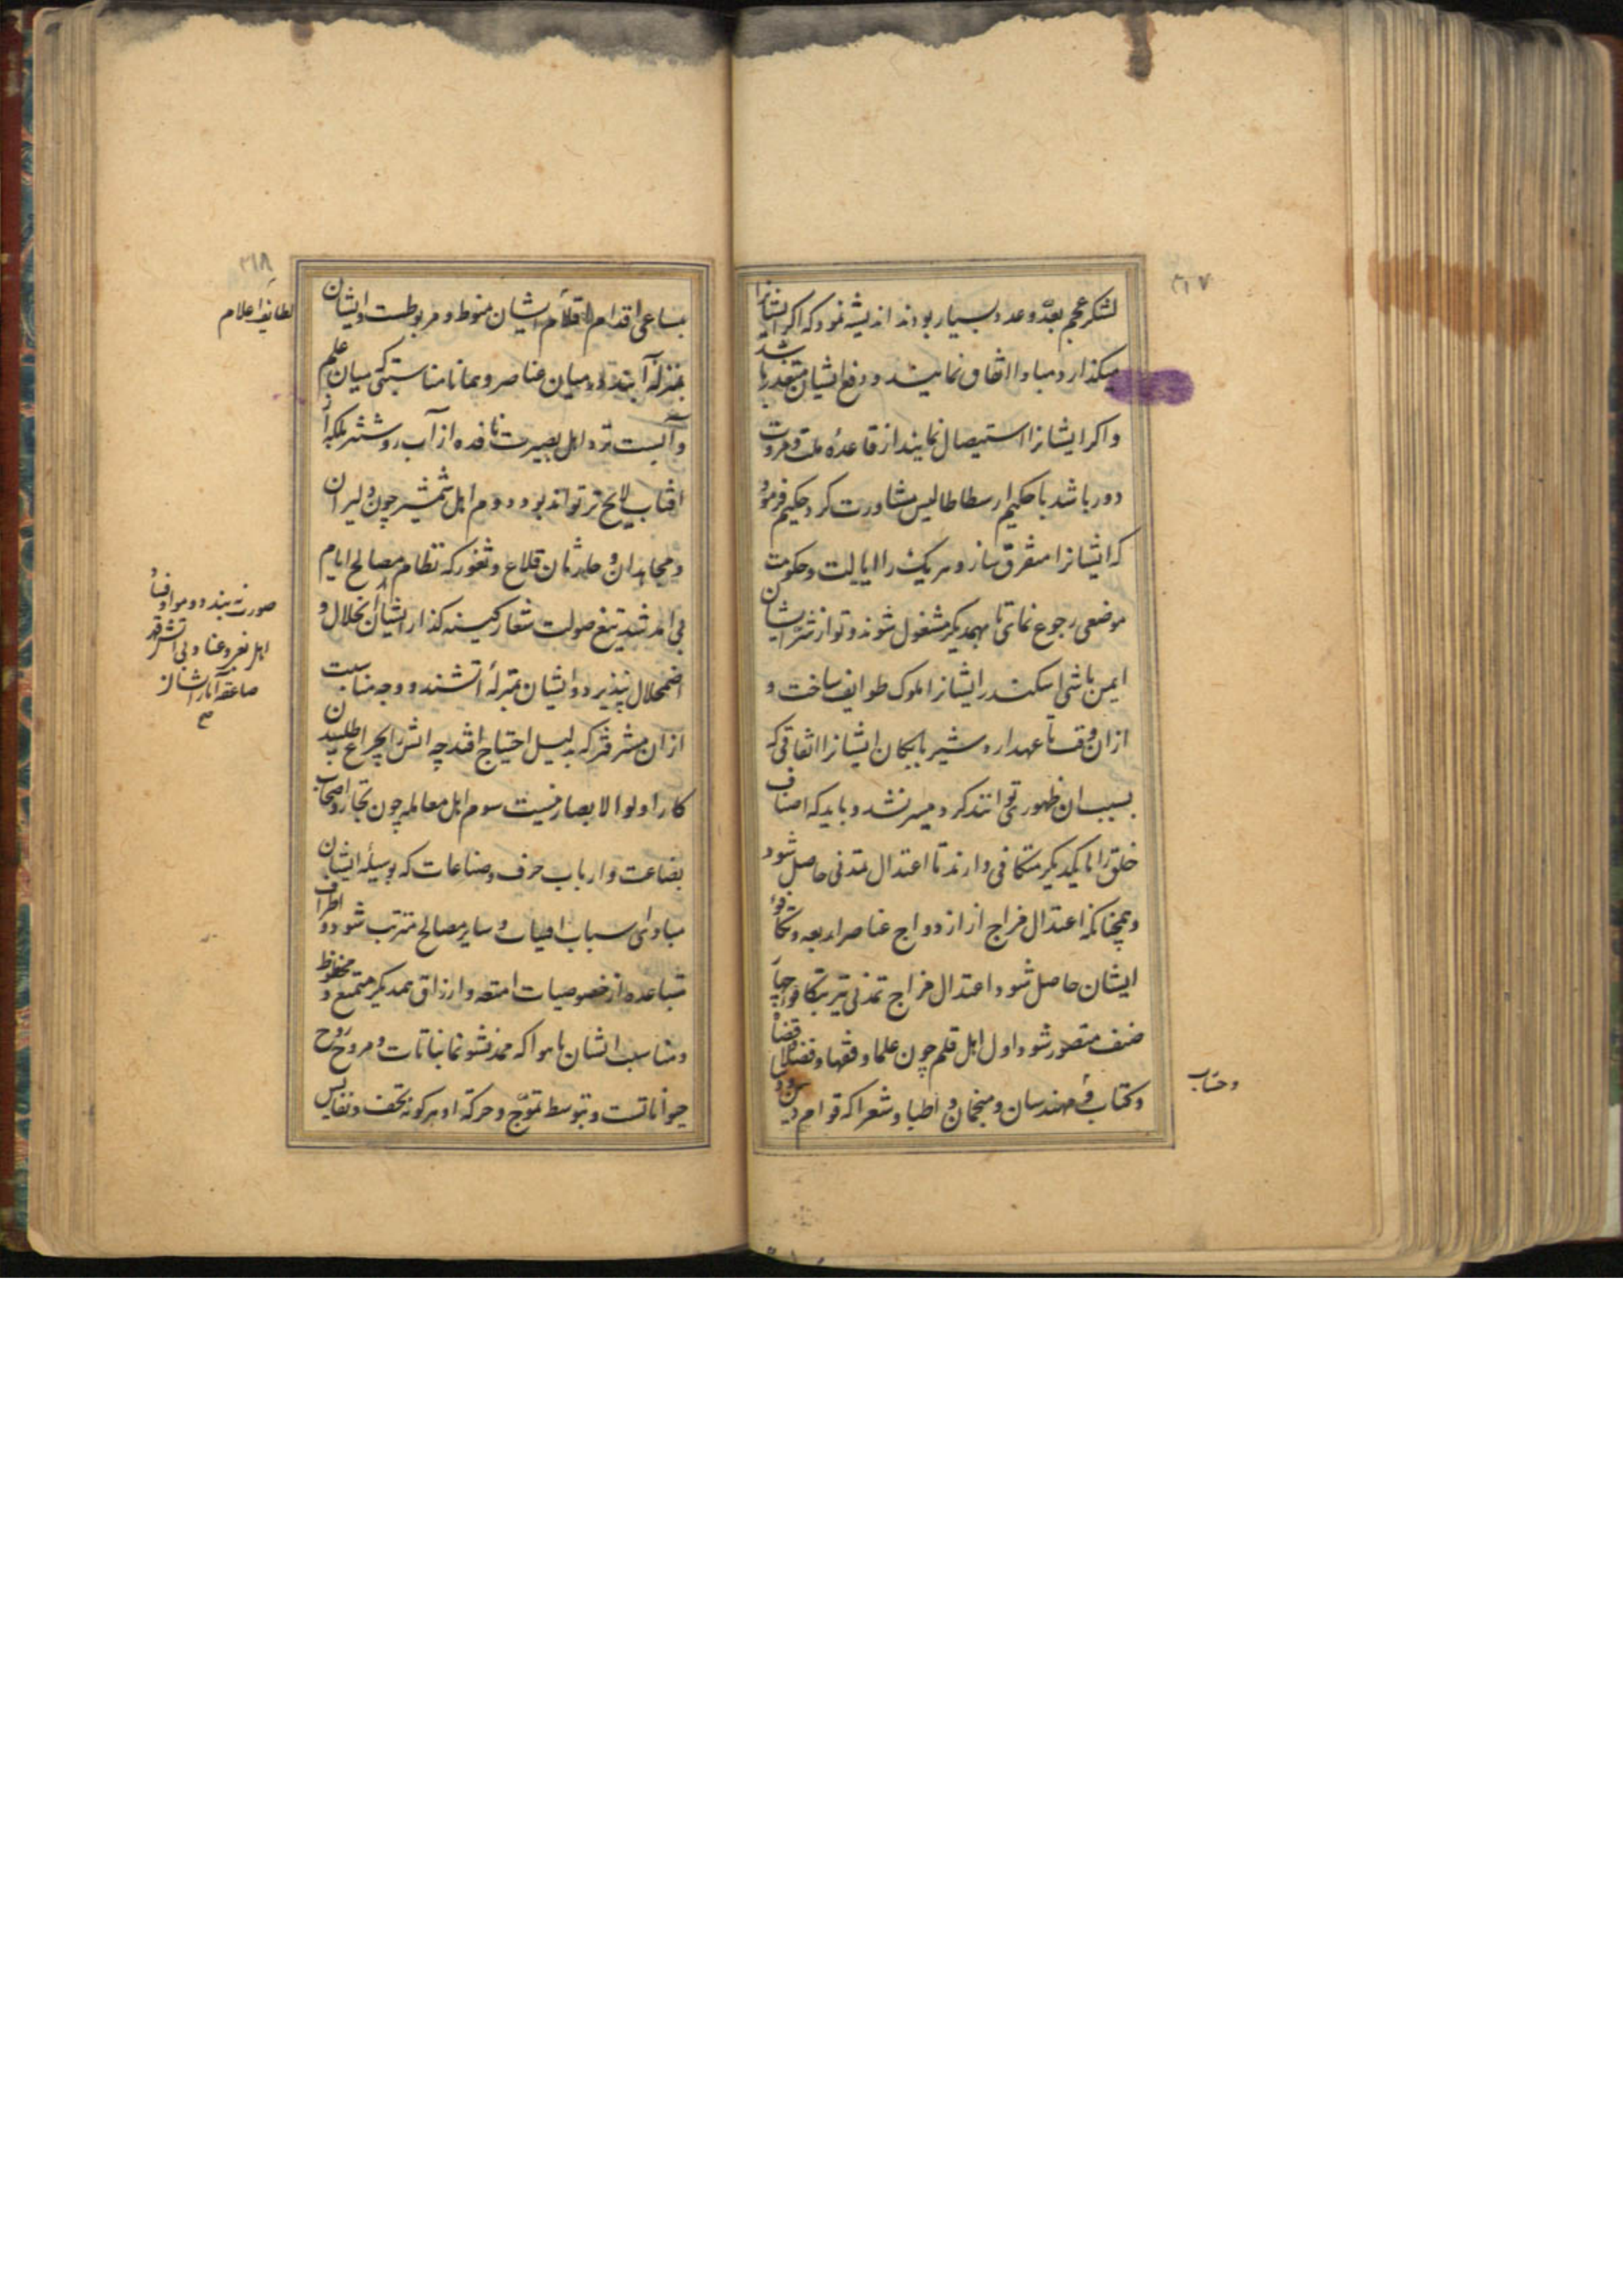 ۳۱۷
لشکر عجم بعدّه و عدد بسیار بودند اندیشه نمود که اکر ایشانرا
میکذارد مبادا اتفاق نمایند و دفع ایشان متعذر باشد
و اکر ایشانرا استیصال نمایند از قاعدهٔ ملت و مروت
دور باشد با حکیم ارسطاطالیس مشاورت کرد حکیم فرمود
که ایشانرا متفرق ساز و هریک را ایالت و حکومت
موضعی رجوع نمای تا بهمدیکر مشغول شوند و تو از شر ایشان
ایمن باشی اسکندر ایشانرا ملوک طوایف ساخت و
ازان وقت تا عهد اردشیر بابکان ایشانرا اتفاقی که
بسبب ان ظهوری توانند کرد میسر نشد و باید که اصناف
خلق را با یکدیکر متکافی دارند تا اعتدال تمدنی حاصل شود
و همچنانکه اعتدال مزاج از ازدواج عناصر اربعه و تکافوء
ایشان حاصل شود اعتدال مزاج تمدنی نیز بتکافوء چهار
صنف متصور شود اول اهل قلم چون علما و فقها و فضلا و قضاة
و کتاب و مهندسان و منجمان و اطبا و شعرا که قوام دین و
و حساب
۳۱۸
بمساعی اقدام اقلام ایشان منوط و مربوطست و ایشان
لطایف اعلام
بمنزله آبند در میان عناصر و همانا مناسبتی که میان علم
و آبست نزد اهل بصیرت نافده از آب روشنتر بلکه از
افتاب لایح تر تواند بود دوم اهل شمشیر چون دلیران
و مجاهدان و حارثان قلاع و ثغور که نظام مصالح ایام
بی امر تیغ صولت شعار کینه کذار ایشان انحلال و
صورت نه بندد و مواد فساد
اهل بغی و عناد بی آتش قهر
صاعقه آثار ایشان از
صح
اضمحلال نپذیرد و ایشان بمنزلهٔ آتشند و وجه مناسبت
ازان مشرقتر که بدلیل احتیاج افتد چه اتش را بچراغ طلبیدن
کار اولوا الابصار نیست سوم اهل معامله چون تجار و اصحاب
بضاعت و ارباب حرف و صناعات که بوسیلهٔ ایشان
مبادی اسباب اقیات و سایر مصالح مترتب شود و اطراف
متباعده از خصوصیات امتعه و ارزاق همدیکر متمتع و محظوظ
و مناسب ایشان با هوا که ممد نشو نما نباتات و مروح روح
حیواناتست و بتوسط تموّج و حرکه او هرکونه تحف و نفایس